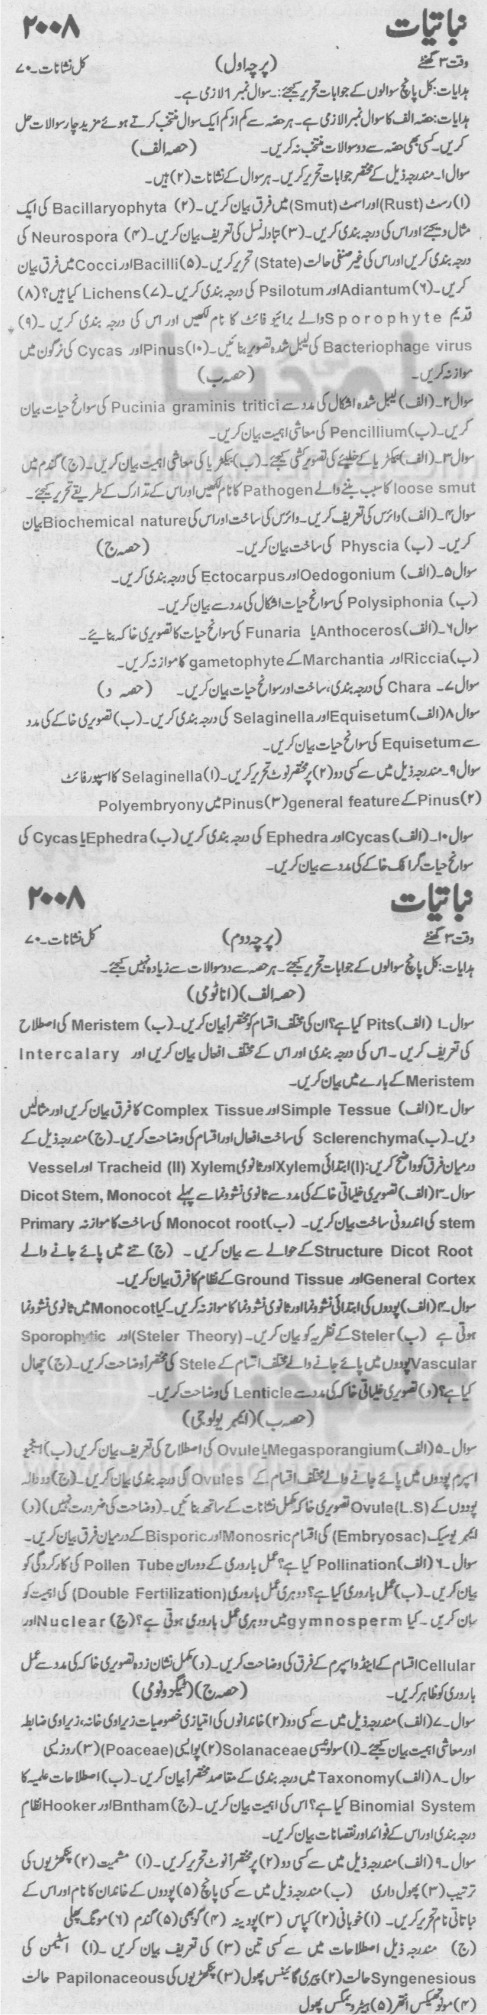 نباتیات ۲۰۰۸
وقت ۳ گھنٹے (پرچہ اول) کل نشانات۔ ۷۰
ہدایات: کل پانچ سوالوں کے جوابات تحریر کیجئے:۔ سوال نمبر ۱ لازمی ہے۔
ہدایات: حصہ الف کا سوال نمبر ۱ لازمی ہے۔ ہر حصہ سے کم از کم ایک سوال منتخب کرتے ہوئے مزید چار سوالات حل
کریں۔ کسی بھی حصہ سے دو سوالات منتخب نہ کریں۔ (حصہ الف)
سوال۱۔ مندرجہ ذیل کے مختصر جوابات تحریر کریں۔ ہر سوال کے نشانات (۲) ہیں۔
(۱) رسٹ (Rust) اور اسمٹ (Smut) میں فرق بیان کریں۔ (۲) Bacillaryophyta کی ایک
مثال دیجئے اور اس کی درجہ بندی کریں۔ (۳) تبادلہ نسل کی تعریف بیان کریں۔ (۴) Neurospora کی
درجہ بندی کریں اور اس کی غیر صنفی حالت (State) تحریر کریں۔ (۵) Bacilli اور Cocci میں فرق بیان
کریں۔ (۶) Adiantum اور Psilotum کی درجہ بندی کریں۔ (۷) Lichens کیا ہیں؟ (۸)
قدیم Sporophyte والے برائیوفائٹ کا نام لکھیں اور اس کی درجہ بندی کریں۔ (۹)
Bacteriophage virus کی لیبل شدہ تصویر بنائیں۔ (۱۰) Pinus اور Cycas کی نرگون میں
موازنہ کریں۔ (حصہ ب)
سوال۲۔ (الف) لیبل شدہ اشکال کی مدد سے Pucinia graminis tritici کی سوانح حیات بیان
کریں۔ (ب) Pencillium کی معاشی اہمیت بیان کریں۔
سوال۳۔ (الف) بیکٹریا کے خلیئے کی تصویر کشی کیجئے۔ (ب) بیکٹریا کی معاشی اہمیت بیان کریں۔ (ج) گندم میں
loose smut کا سبب بننے والے Pathogen کا نام لکھیں اور اس کے تدارک کے طریقے تحریر کیجئے۔
سوال۴۔ (الف) وائرس کی تعریف کریں۔ وائرس کی ساخت اور اس کی Biochemical nature بیان
کریں۔ (ب) Physcia کی ساخت بیان کریں۔ (حصہ ج)
سوال۵۔ (الف) Oedogonium اور Ectocarpus کی درجہ بندی کریں۔
(ب) Polysiphonia کی سوانح حیات اشکال کی مدد سے بیان کریں۔
سوال۶۔ (الف) Anthoceros یا Funaria کی سوانح حیات کا تصویری خاکہ بنائیے۔
(ب) Riccia اور Marchantia کے gametophyte کا موازنہ کریں۔
سوال۷۔ Chara کی درجہ بندی، ساخت اور سوانح حیات بیان کریں۔ (حصہ د)
سوال۸ (الف) Equisetum اور Selaginella کی درجہ بندی کریں۔ (ب) تصویری خاکے کی مدد
سے Equisetum کی سوانح حیات بیان کریں۔
سوال۹۔ مندرجہ ذیل میں سے کسی دو (۲) پر مختصر نوٹ تحریر کریں۔ (۱) Selaginella کا اسپوروفائٹ
(۲) Pinus کے general feature (۳) Pinus میں Polyembryony
سوال۱۰۔ (الف) Cycas اور Ephedra کی درجہ بندی کریں (ب) Ephedra یا Cycas کی
سوانح حیات گرافک خاکے کی مدد سے بیان کریں۔
نباتیات ۲۰۰۸
وقت ۳ گھنٹے (پرچہ دوم) کل نشانات۔ ۷۰
ہدایات: کل پانچ سوالوں کے جوابات تحریر کیجئے۔ ہر حصہ سے دو سوالات سے زیادہ نہیں کیجئے۔
(حصہ الف) (اناٹومی)
سوال۔۱ (الف) Pits کیا ہے؟ ان کی مختلف اقسام کو مختصراً بیان کریں۔ (ب) Meristem کی اصطلاح
کی تعریف کریں۔ اس کی درجہ بندی اور اس کے مختلف افعال بیان کریں اور Intercalary
Meristem کے بارے میں بیان کریں۔
سوال۔۲ (الف) Simple Tessue اور Complex Tissue کا فرق بیان کریں اور مثالیں
دیں۔ (ب) Sclerenchyma کی ساخت افعال اور اقسام کی وضاحت کریں۔ (ج) مندرجہ ذیل کے
درمیان فرق کو واضح کریں: (I) ابتدائی Xylem اور ثانوی Xylem (II) Tracheid اور Vessel
سوال۔۳ (الف) تصویری خلیاتی خاکے کی مدد سے ثانوی نشوونما سے پہلے Dicot Stem, Monocot
stem کی اندرونی ساخت بیان کریں۔ (ب) Monocot root کی ساخت کا موازنہ Primary
Structure Dicot Root کے حوالے سے بیان کریں۔ (ج) تنے میں پائے جانے والے
General Cortex اور Ground Tissue کے نظام کا فرق بیان کریں۔
سوال۔۴ (الف) پودوں کی ابتدائی نشوونما اور ثانوی نشوونما کا موازنہ کریں۔ کیا Monocot میں ثانوی نشوونما
ہوتی ہے (ب) Steler کے نظریہ کو بیان کریں۔ (Steler Theory) اور Sporophytic
Vascular پودوں میں پائے جانے والے مختلف اقسام کے Stele کی مختصراً وضاحت کریں۔ (ج) چھال
کیا ہے؟ (د) تصویری خلیاتی خاکہ کی مدد سے Lenticle کی وضاحت کریں۔
(حصہ ب) (ایمبریولوجی)
سوال۔۵ (الف) Megasporangium یا Ovule کی اصطلاح کی تعریف بیان کریں (ب) اینجیو
اسپرم پودوں میں پائے جانے والے مختلف اقسام کے Ovules کی درجہ بندی کریں۔ (ج) دو دالہ
پودوں کے Ovule (L.S) تصویری خاکہ مکمل نشانات کے ساتھ بنائیں۔ (وضاحت کی ضرورت نہیں) (د)
ایمبریوسیک (Embryosac) کی اقسام Monosric اور Bisporic کے درمیان فرق بیان کریں۔
سوال۔۶ (الف) Pollination کیا ہے؟ عمل باروری کے دوران Pollen Tube کی کارکردگی کو
بیان کریں۔ (ب) عمل باروری کیا ہے؟ دوہری عمل باروری (Double Fertilization) کی اہمیت کو
بیان کریں۔ کیا gymnosperm میں دوہری عمل باروری ہوتی ہے؟ (ج) Nuclear اور
Cellular اقسام کے اینڈواسپرم کے فرق کی وضاحت کریں۔ (د) مکمل نشان زدہ تصویری خاکہ کی مدد سے عمل
باروری کو ظاہر کریں۔ (حصہ ج) (ٹیکسونومی)
سوال۔۷ (الف) مندرجہ ذیل میں سے کسی دو (۲) خاندانوں کی امتیازی خصوصیات زیراوی خانہ، زیراوی ضابطہ
اور معاشی اہمیت بیان کیجئے۔ (۱) سولینیسی Solanaceae (۲) پوایسی (Poaceae) (۳) روزیسی
سوال۔۸ (الف) Taxonomy میں درجہ بندی کے مقاصد مختصراً بیان کریں۔ (ب) اصطلاحات علمیہ کا
Binomial System کیا ہے؟ اس کی اہمیت بیان کریں۔ (ج) Bntham اور Hooker نظام
درجہ بندی اور اس کے فوائد اور نقصانات بیان کریں۔
سوال۔۹ (الف) مندرجہ ذیل میں سے کسی دو (۲) پر مختصراً نوٹ تحریر کریں۔ (۱) مشمیت (۲) پنکھڑیوں کی
ترتیب (۳) پھول داری (ب) مندرجہ ذیل میں سے کسی پانچ (۵) پودوں کے خاندان کا نام اور اس کے
نباتاتی نام تحریر کریں۔ (۱) خوبانی (۲) کپاس (۳) پودینہ (۴) گوبھی (۵) گندم (۶) مونگ پھلی
(ج) مندرجہ ذیل اصطلاحات میں سے کسی تین (۳) کی تعریف بیان کریں۔ (۱) اسٹیمن کی
Syngenesious حالت (۲) پیری گائینس پھول (۳) پنکھڑیوں کی Papilonaceous حالت
(۴) مونوتھیکس انتھر (۵) ہیٹروچیکس پھول